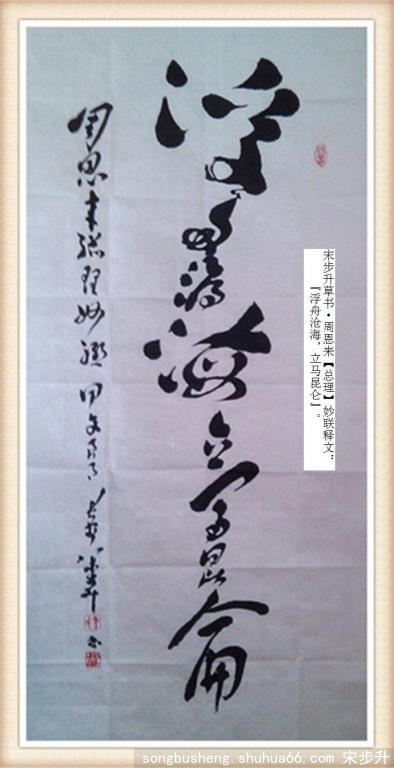 宋步升草书·周恩来【总理】妙联释文：
『浮舟沧海，立马昆仑』。
浮舟滄海立馬昆侖
周恩来總理妙聯甲午
songbusheng.shuhua66.com 宋步升